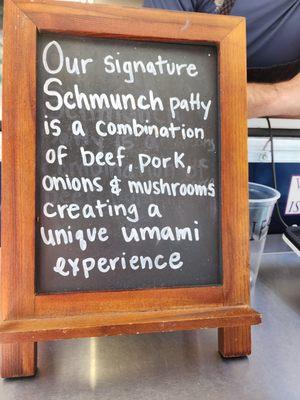 Our signature
Schmunch patty
is a combination
of beef, pork,
onions & mushrooms
creating a
unique umami
experience